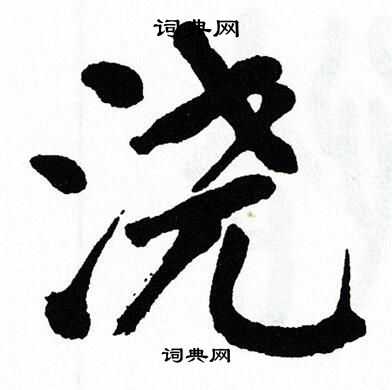 词典网
浇
词典网